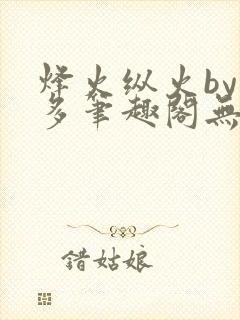 烽火纵火by
多笔趣阁無
错姑娘